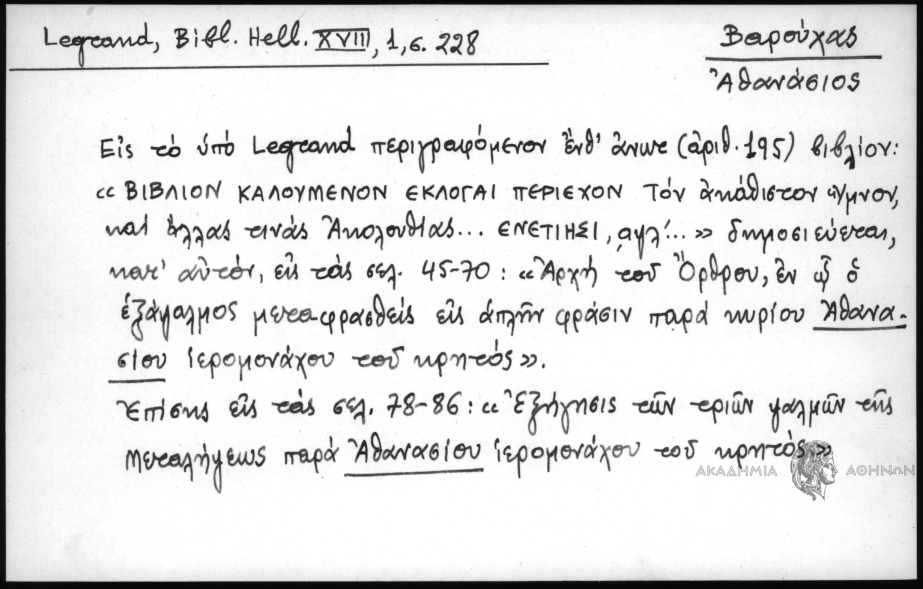 Legrand, Bibl. Hell. XVII, 1, σ. 228
Βαρούχας
Ἀθανάσιος
Εἰς τὸ ὑπὸ Legrand περιγραφόμενον ἔνθ' ἄνωτ (ἀριθ. 195) βιβλίον:
« ΒΙΒΛΙΟΝ ΚΑΛΟΥΜΕΝΟΝ ΕΚΛΟΓΑΙ ΠΕΡΙΕΧΟΝ Τὸν ἀκάθιστον ὕμνον,
καὶ ἄλλας τινὰς Ἀκολουθίας... ΕΝΕΤΙΗΣΙ, ͵αψλ'... » δημοσιεύεται,
κατ' αὐτὸν, εἰς τὰς σελ. 45-70 : «Ἀρχὴ τοῦ Ὄρθρου, ἐν ᾧ ὁ
ἑξάψαλμος μεταφρασθεὶς εἰς ἁπλῆν φράσιν παρὰ κυρίου Ἀθανα-
σίου ἱερομονάχου τοῦ κρητὸς».
Ἐπίσης εἰς τὰς σελ. 78-86 : « Ἐξήγησις τῶν τριῶν ψαλμῶν τῆς
Μεταλήψεως παρὰ Ἀθανασίου ἱερομονάχου τοῦ κρητὸς»
ΑΚΑΔΗΜΙΑ ΑΘΗΝΩΝ